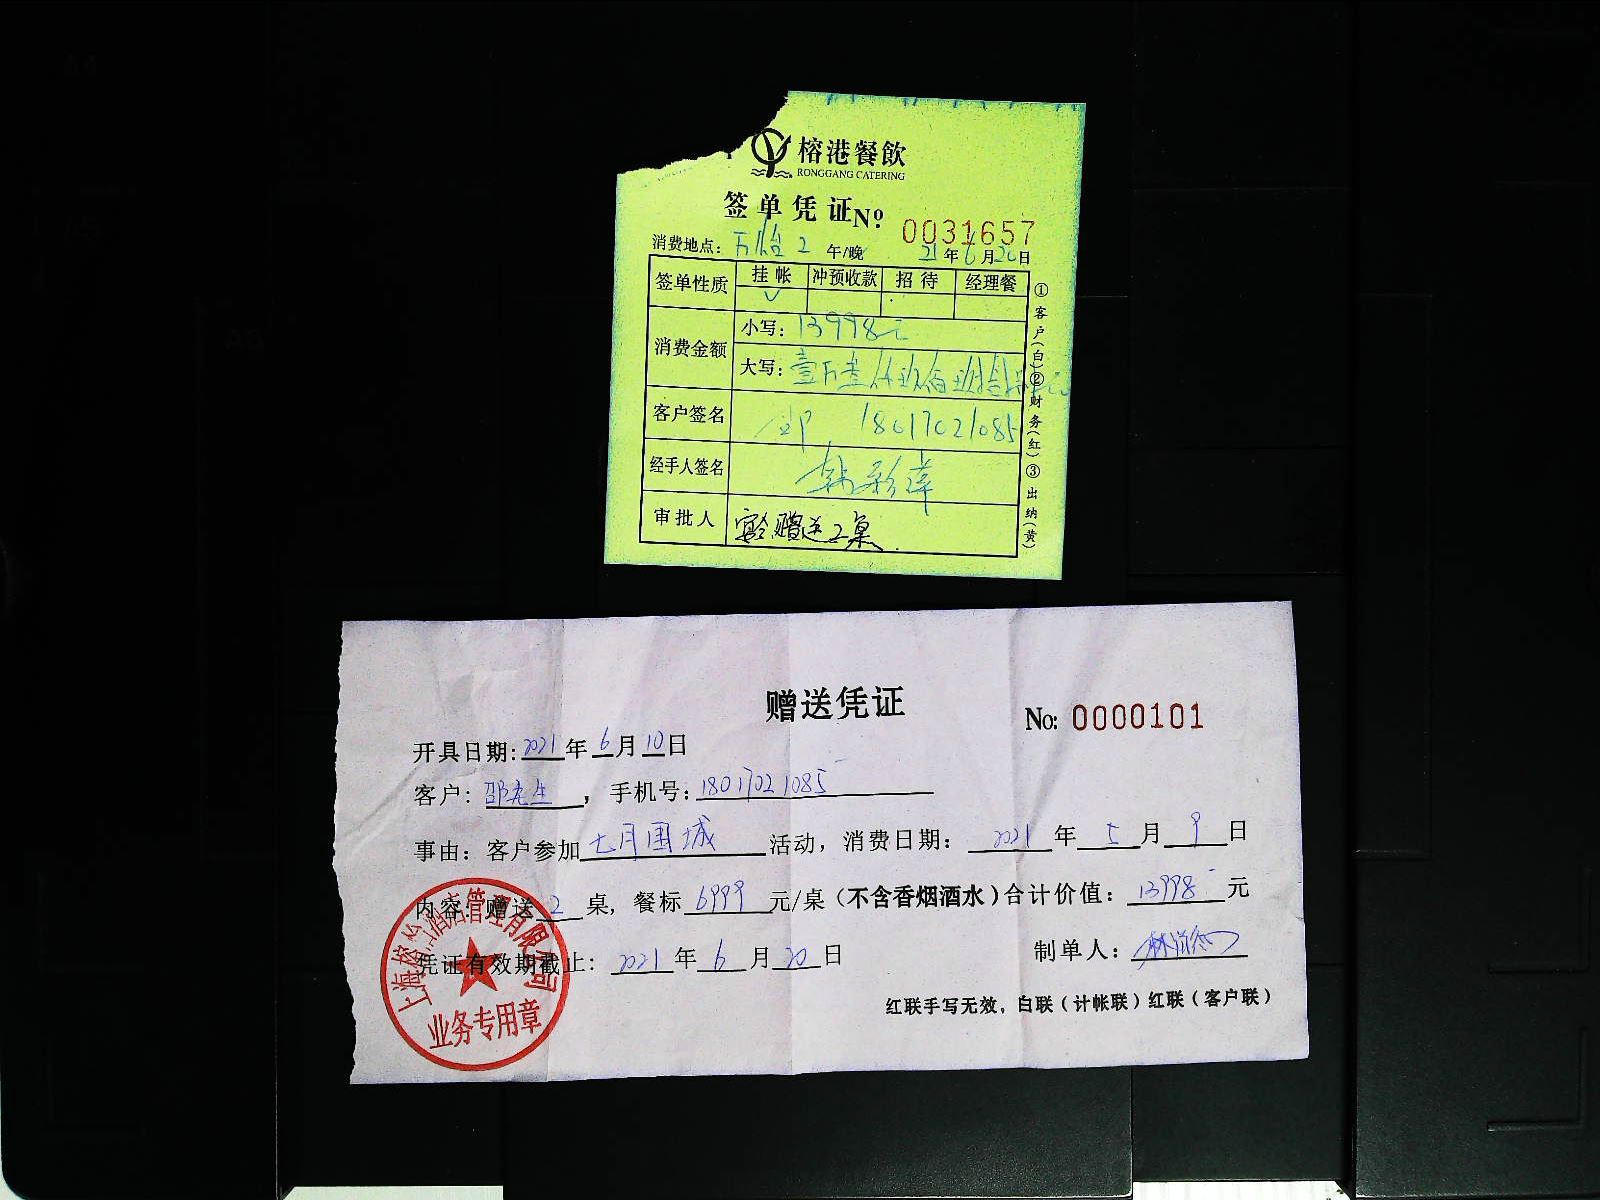 榕港餐飲
RONGGANG CATERING
签单凭证 No: 0031657
消费地点: 万怡2 午/晚 21年6月20日
签单性质 挂帐 冲预收款 招待 经理餐
✓
消费金额 小写: 13998元
大写: 壹万
客户签名 邵 18017021085
经手人签名
审批人 赠送2桌
①客户(白)②财务(红)③出纳(黄)
赠送凭证
No: 0000101
开具日期: 2021年6月10日
客户: 邵先生, 手机号: 18017021085
事由: 客户参加七月围城活动, 消费日期: 2021年5月9日
内容: 赠送2桌, 餐标6999元/桌(不含香烟酒水)合计价值: 13998元
凭证有效期截止: 2021年6月20日 制单人:
红联手写无效, 白联(计帐联)红联(客户联)
业务专用章